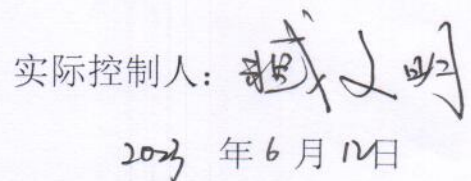 实际控制人：臧文明
2023 年 6 月 12日